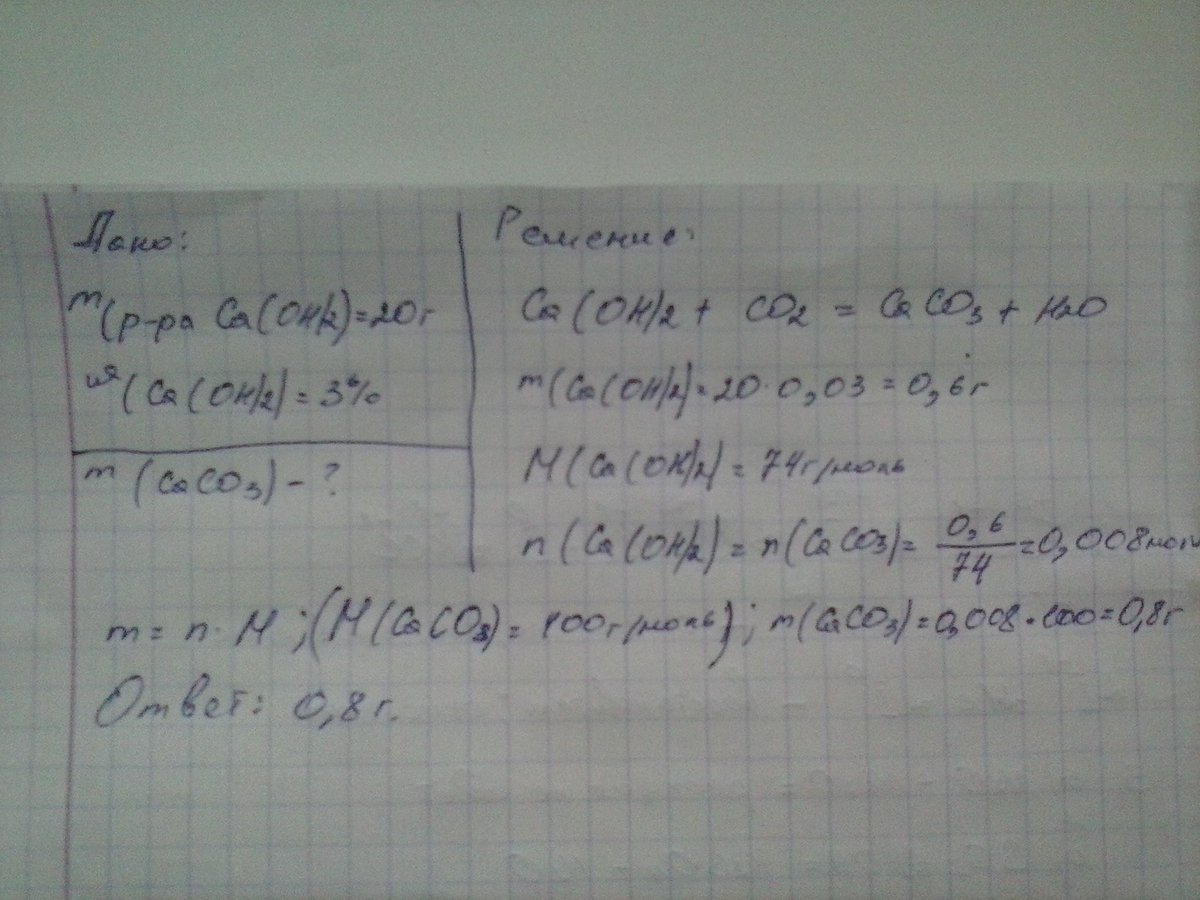 Дано:
m(р-ра Ca(OH)2)=20г
ω(Ca(OH)2)=3%
m(CaCO3)-?
Решение:
Ca(OH)2 + CO2 = CaCO3 + H2O
m(Ca(OH)2)=20·0,03=0,6г
M(Ca(OH)2)=74г/моль
n(Ca(OH)2)=n(CaCO3)=0,6/74=0,008моль
m=n·M;(M(CaCO3)=100г/моль); m(CaCO3)=0,008·100=0,8г
Ответ: 0,8г.